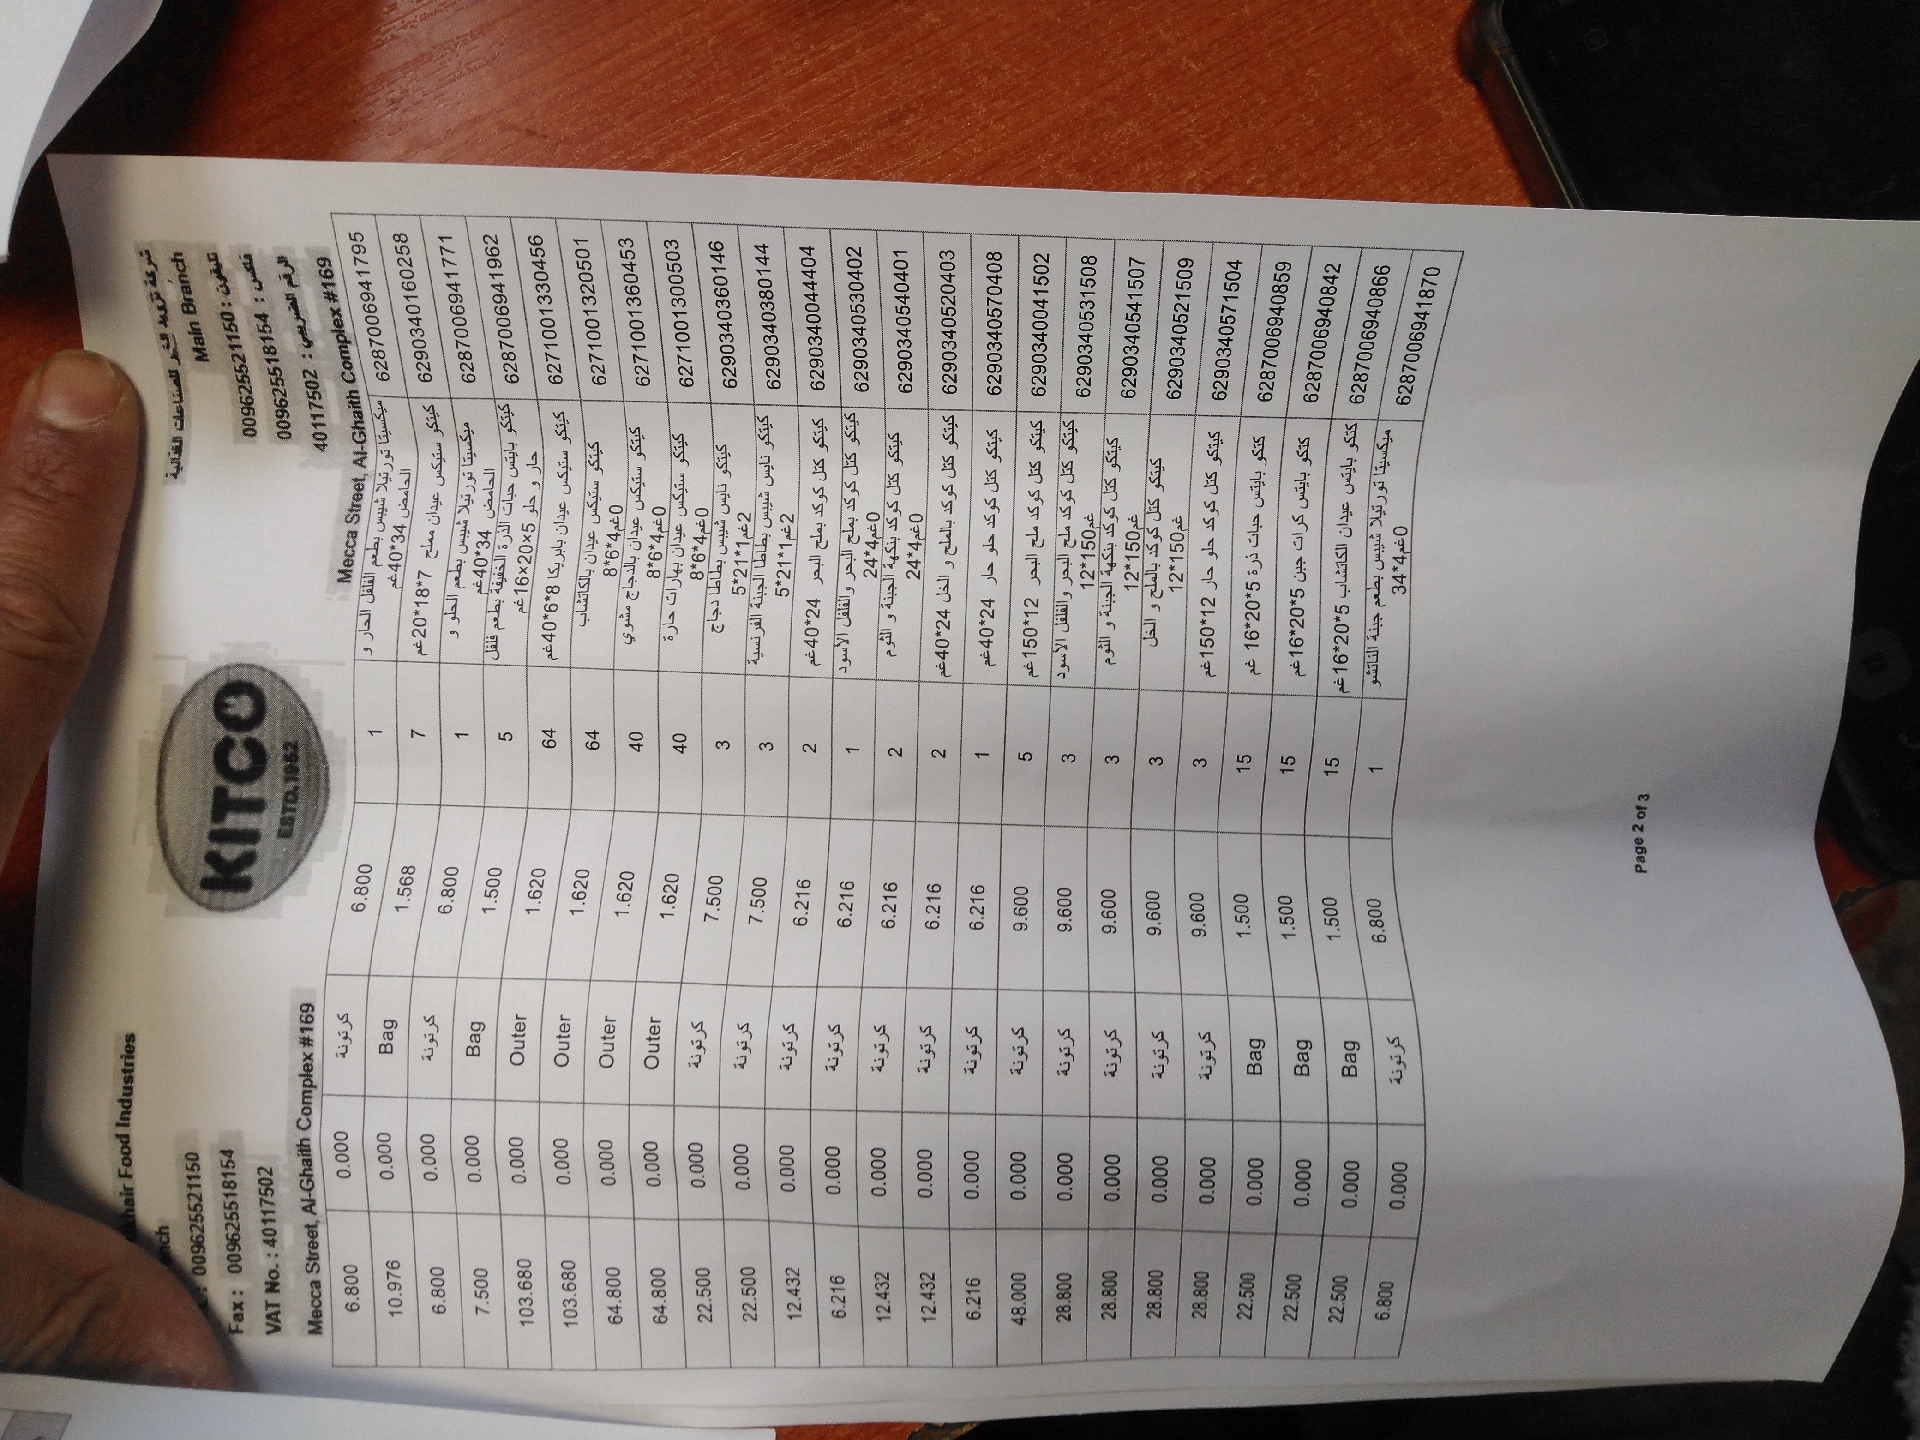 khair Food Industries
nch
: 0096265521150
Fax : 0096265518154
VAT No. : 40117502
Mecca Street, Al-Ghaith Complex #169
KITCO
ESTD.1962
للصناعات الغذائية
Main Branch
تليفون : 0096265521150
فاكس : 0096265518154
الرقم الضريبي : 40117502
Mecca Street, Al-Ghaith Complex #169
6.800 0.000 كرتونة 6.800 1 ميكسيتا تورتيلا شيبس بطعم الفلفل الحار و 6287006941795
الحامض 34*40غم
10.976 0.000 Bag 1.568 7 كيتكو ستيكس عيدان مملح 7*18*20غم 6290340160258
6.800 0.000 كرتونة 6.800 1 ميكسيتا تورتيلا شيبس بطعم الحلو و 6287006941771
الحامض 34*40غم
7.500 0.000 Bag 1.500 5 كيتكو بايتس حبات الذرة الخفيفة بطعم فلفل 6287006941962
حار و حلو 5×20×16غم
103.680 0.000 Outer 1.620 64 كيتكو ستيكس عيدان بابريكا 8*6*40غم 6271001330456
103.680 0.000 Outer 1.620 64 كيتكو ستيكس عيدان بالكاتشاب 6271001320501
8*6*4غم0
64.800 0.000 Outer 1.620 40 كيتكو ستيكس عيدان بالدجاج مشوي 6271001360453
8*6*4غم0
64.800 0.000 Outer 1.620 40 كيتكو ستيكس عيدان بهارات حارة 6271001300503
8*6*4غم0
22.500 0.000 كرتونة 7.500 3 كيتكو نايس شيبس بطاطا دجاج 6290340360146
5*21*1غم2
22.500 0.000 كرتونة 7.500 3 كيتكو نايس شيبس بطاطا الجبنة الفرنسية 6290340380144
5*21*1غم2
12.432 0.000 كرتونة 6.216 2 كيتكو كتل كوكد بملح البحر 24*40غم 6290340044404
6.216 0.000 كرتونة 6.216 1 كيتكو كتل كوكد بملح البحر والفلفل الأسود 6290340530402
24*4غم0
12.432 0.000 كرتونة 6.216 2 كيتكو كتل كوكد بنكهة الجبنة و الثوم 6290340540401
24*4غم0
12.432 0.000 كرتونة 6.216 2 كيتكو كتل كوكد بالملح و الخل 24*40غم 6290340520403
6.216 0.000 كرتونة 6.216 1 كيتكو كتل كوكد حلو حار 24*40غم 6290340570408
48.000 0.000 كرتونة 9.600 5 كيتكو كتل كوكد ملح البحر 12*150غم 6290340041502
28.800 0.000 كرتونة 9.600 3 كيتكو كتل كوكد ملح البحر والفلفل الأسود 6290340531508
12*150غم
28.800 0.000 كرتونة 9.600 3 كيتكو كتل كوكد بنكهة الجبنة و الثوم 6290340541507
12*150غم
28.800 0.000 كرتونة 9.600 3 كيتكو كتل كوكد بالملح و الخل 6290340521509
12*150غم
28.800 0.000 كرتونة 9.600 3 كيتكو كتل كوكد حلو حار 12*150غم 6290340571504
22.500 0.000 Bag 1.500 15 كتكو بايتس حبات ذرة 5*20*16 غم 6287006940859
22.500 0.000 Bag 1.500 15 كتكو بايتس كرات جبن 5*20*16غم 6287006940842
22.500 0.000 Bag 1.500 15 كتكو بايتس عيدان الكاتشاب 5*20*16غم 6287006940866
6.800 0.000 كرتونة 6.800 1 ميكسيتا تورتيلا شيبس بطعم جبنة الناتشو 6287006941870
34*4غم0
Page 2 of 3